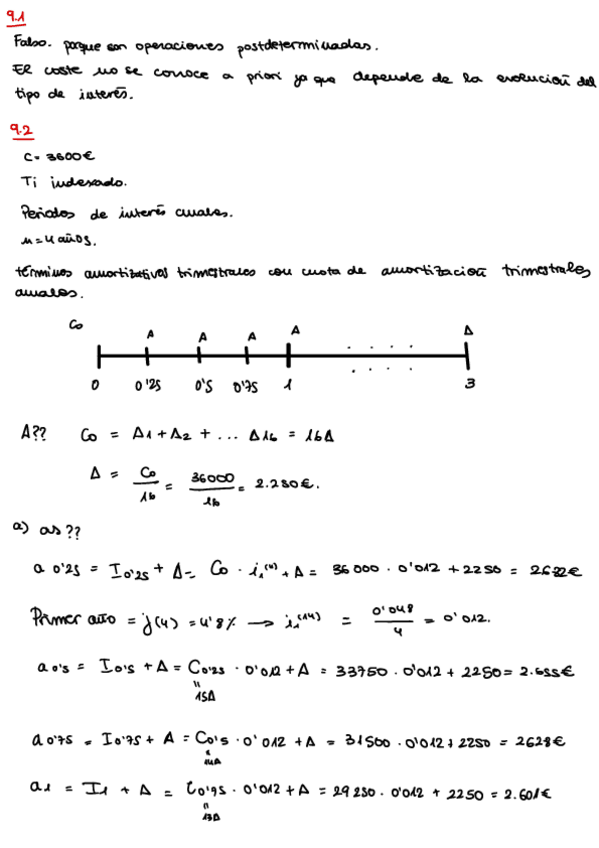 9.1
Falso. porque son operaciones postdeterminadas.
El coste no se conoce a priori ya que depende de la evolución del
tipo de interés.
9.2
C = 3600€
Ti indexado.
Periodos de interés anuales.
n = 4 años.
términos amortizativos trimestrales con cuota de amortización trimestrales
anuales.
Co A A A A . . . . Δ
0 0'25 0'5 0'75 1 . . . . 3
A?? Co = Δ1 + Δ2 + ... Δ16 = 16Δ
Δ = Co/16 = 36000/16 = 2.250€.
a) as??
a 0'25 = I0'25 + Δ = Co · i1(4) + A = 36000 · 0'012 + 2250 = 2682€
Primer año = j(4) = 4'8% → i1(14) = 0'048/4 = 0'012.
a0'5 = I0'5 + A = C0'25 · 0'012 + A = 33750 · 0'012 + 2250 = 2.655€
"
15Δ
a0'75 = I0'75 + A = C0'5 · 0'012 + Δ = 31500 · 0'012 + 2250 = 2628€
"
14Δ
a1 = I1 + Δ = C0'75 · 0'012 + A = 29250 · 0'012 + 2250 = 2.601€
"
13Δ